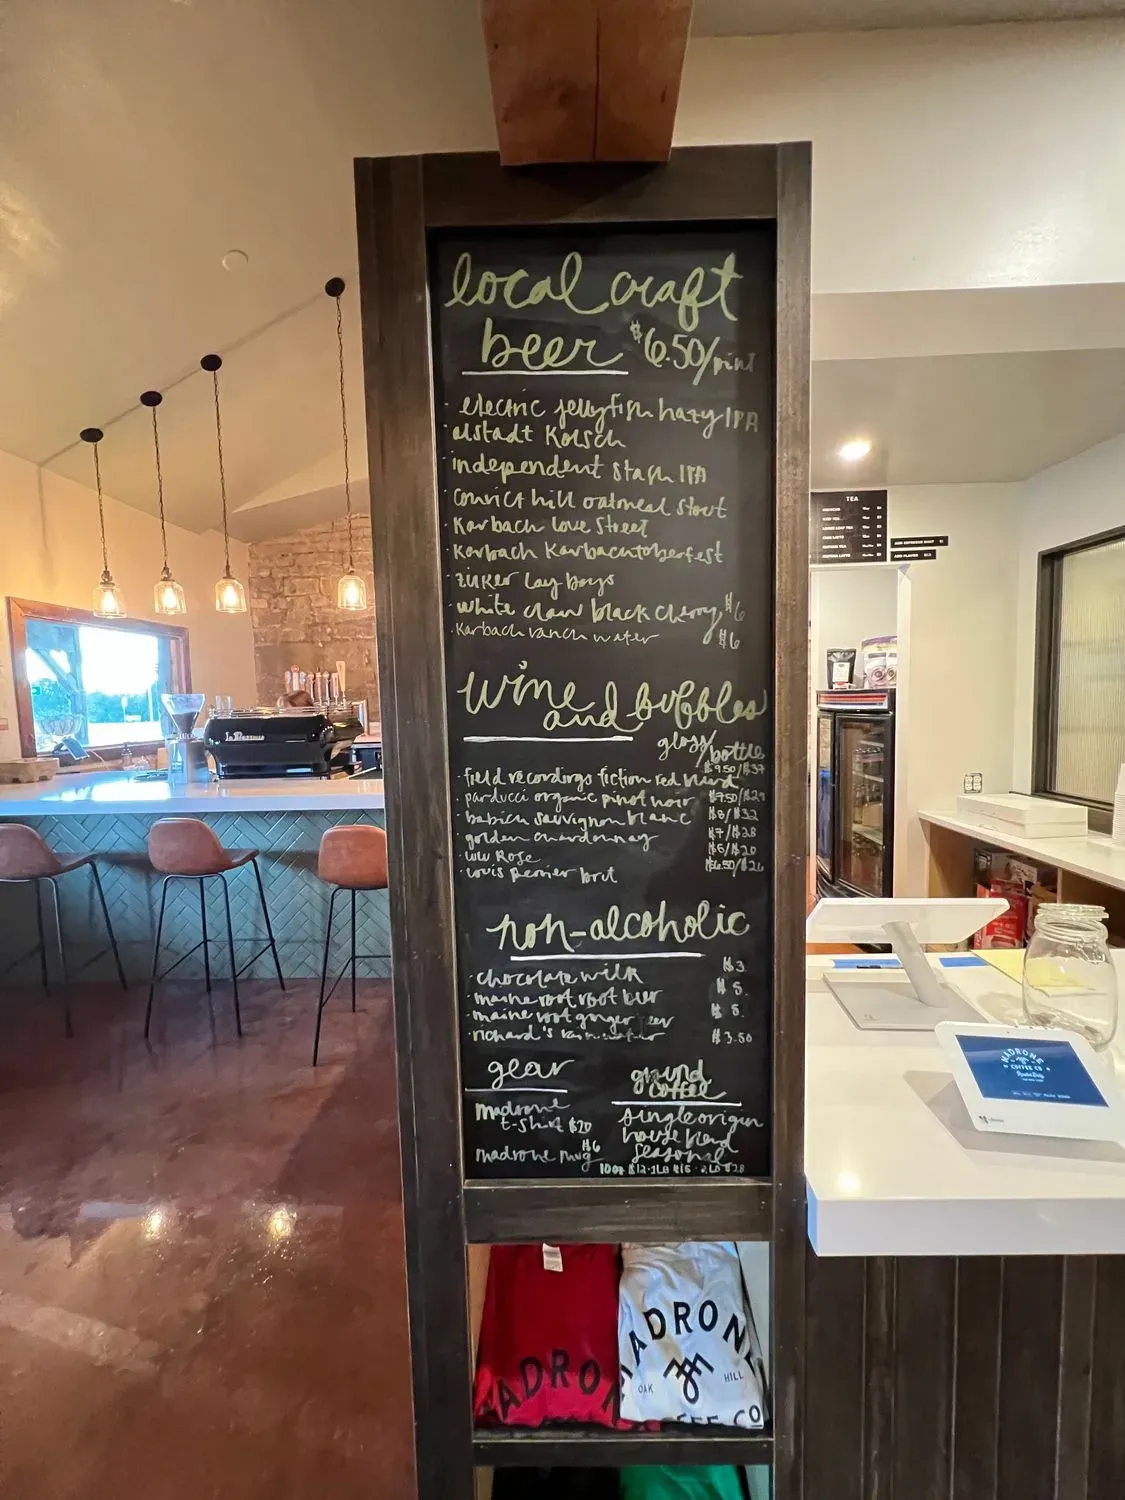 local craft
beer $6.50/pint
· electric jellyfish hazy IPA
· alstadt Kolsch
· independent stash IPA
· convict hill oatmeal stout
· Karbach Love Street
· Karbach Karbachtoberfest
· zilker Lay Days
· white claw black cherry, $6
· Karbach ranch water $6
wine
and bubbles
glass/bottle
· field recordings fiction red $9.50/$37
· parducci organic pinot noir $7.50/$29
· babich sauvignon blanc $8/$32
· golden chardonnay $7/$28
· Rose $5/$20
· Louis Perrier brut $6.50/$26
non-alcoholic
· chocolate milk $3
· maine root root beer $5.
· maine root ginger beer $5.
· richard's rainwater $3.50
gear
madrone
t-shirt $20
madrone mug $6
ground
coffee
single origin
house blend
seasonal
10oz $12 · 1LB $16 · 2LB $28
TEA
MADRONE
COFFEE CO
ADRON
MADRONE
OAK HILL
COFFEE CO